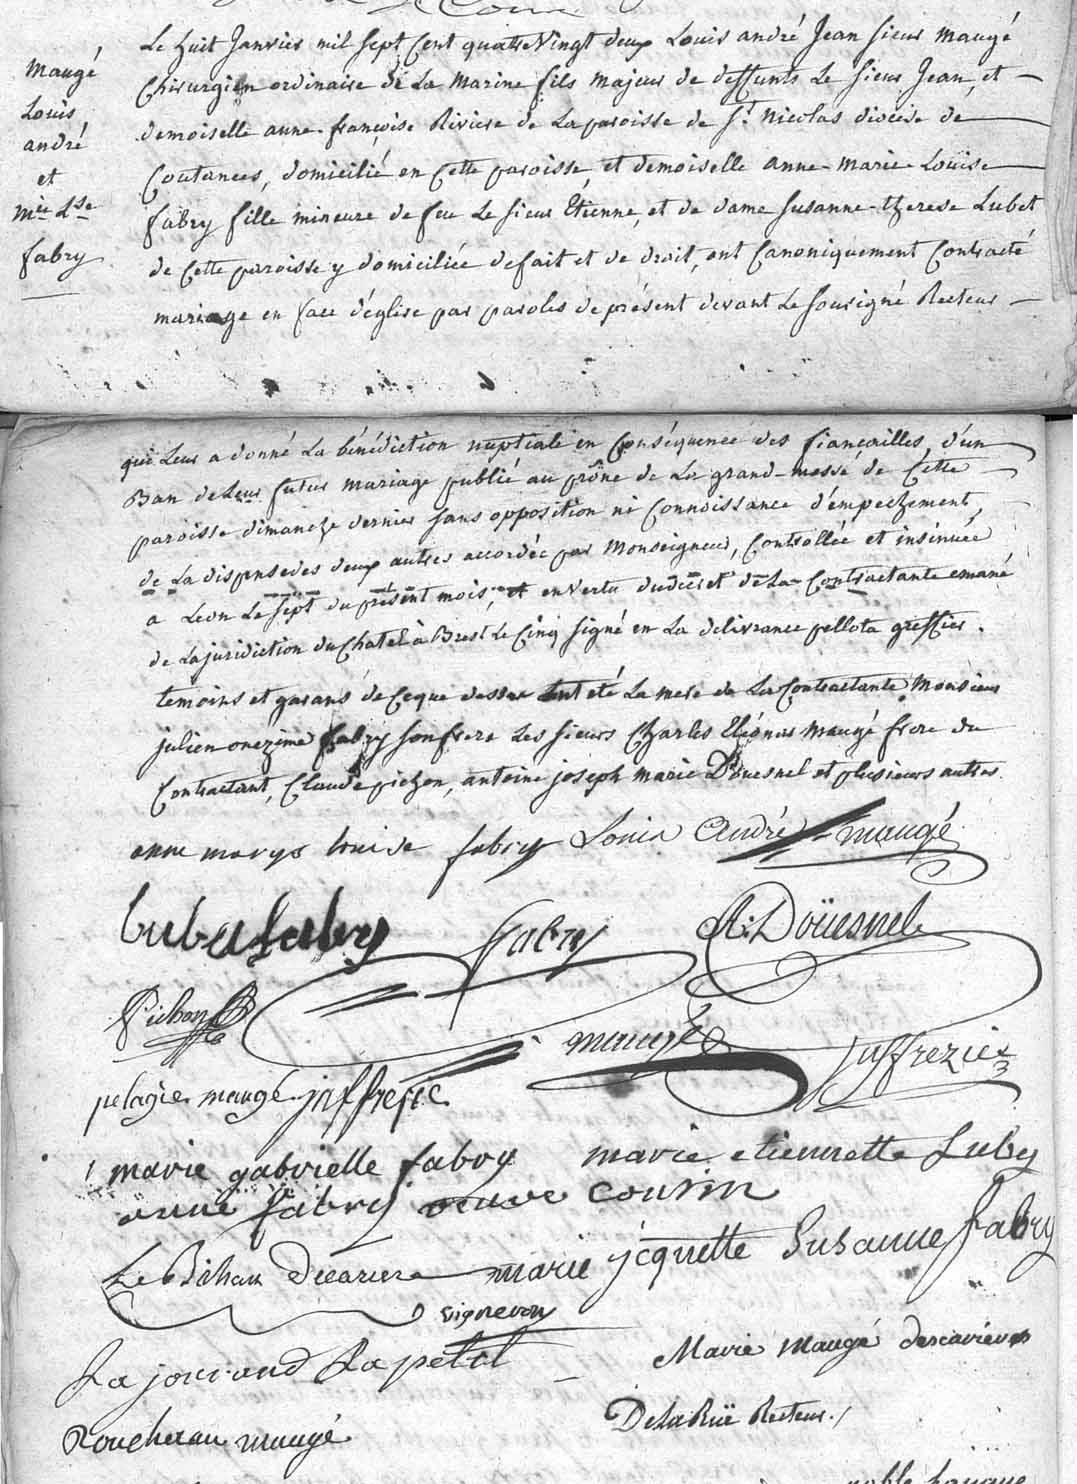 Maugé
Louis
andré
et
Mie Lse
fabry
Le huit Janvier mil sept Cent quatreVingt deux Louis andré Jean sieur maugé
Chirurgien ordinaire de La marine fils majeur de deffunts Le sieur Jean, et
demoiselle anne françoise Riviere de La paroisse de St nicolas diocèse de
Coutances, domicilié en Cette paroisse, et demoiselle anne marie Louise
fabry fille mineure de feu Le sieur Etienne, et de dame susanne therese Lubet
de Cette paroisse y domiciliée de fait et de droit, ont Canoniquement Contracté
mariage en face d'église par paroles de présent devant Le soussigné Recteur
qui Leur a donné La bénédiction nuptiale en Conséquence des fiancailles, d'un
Ban de Leur futur mariage publié au prône de La grand-messe de Cette
paroisse dimanche dernier sans opposition ni Connoissance d'empechement,
de La dispense des deux autres accordée par Monseigneur, Controllée et insinuée
a Leon Le sept du présent mois, et en vertu du décret de La Contractante emané
de La juridiction du Chatel à Brest Le Cinq signé en La delivrance pellota greffier.
temoins et garans de Ceque dessus ont eté La mere de La Contractante Monsieur
julien onezime fabry son frere Les sieurs Charles Eléonor Maugé frere du
Contractant, Claude pichon, antoine joseph marie Doüesnel et plusieurs autres.
anne marye louise fabry Louis André maugé
Lubet fabry fabry A: Doüesnel
Pichon maugé Juffrezic
pelagie maugé juffresic
marie gabrielle fabry marie etiennette Luby
anne fabry veuve cousin
Le Bihan Decariere marie jéquette Susanne fabry
vigneron
La jouvand La petit Marie Maugé descarieres
Roucherau maugé DelaRüe Recteur.
noble